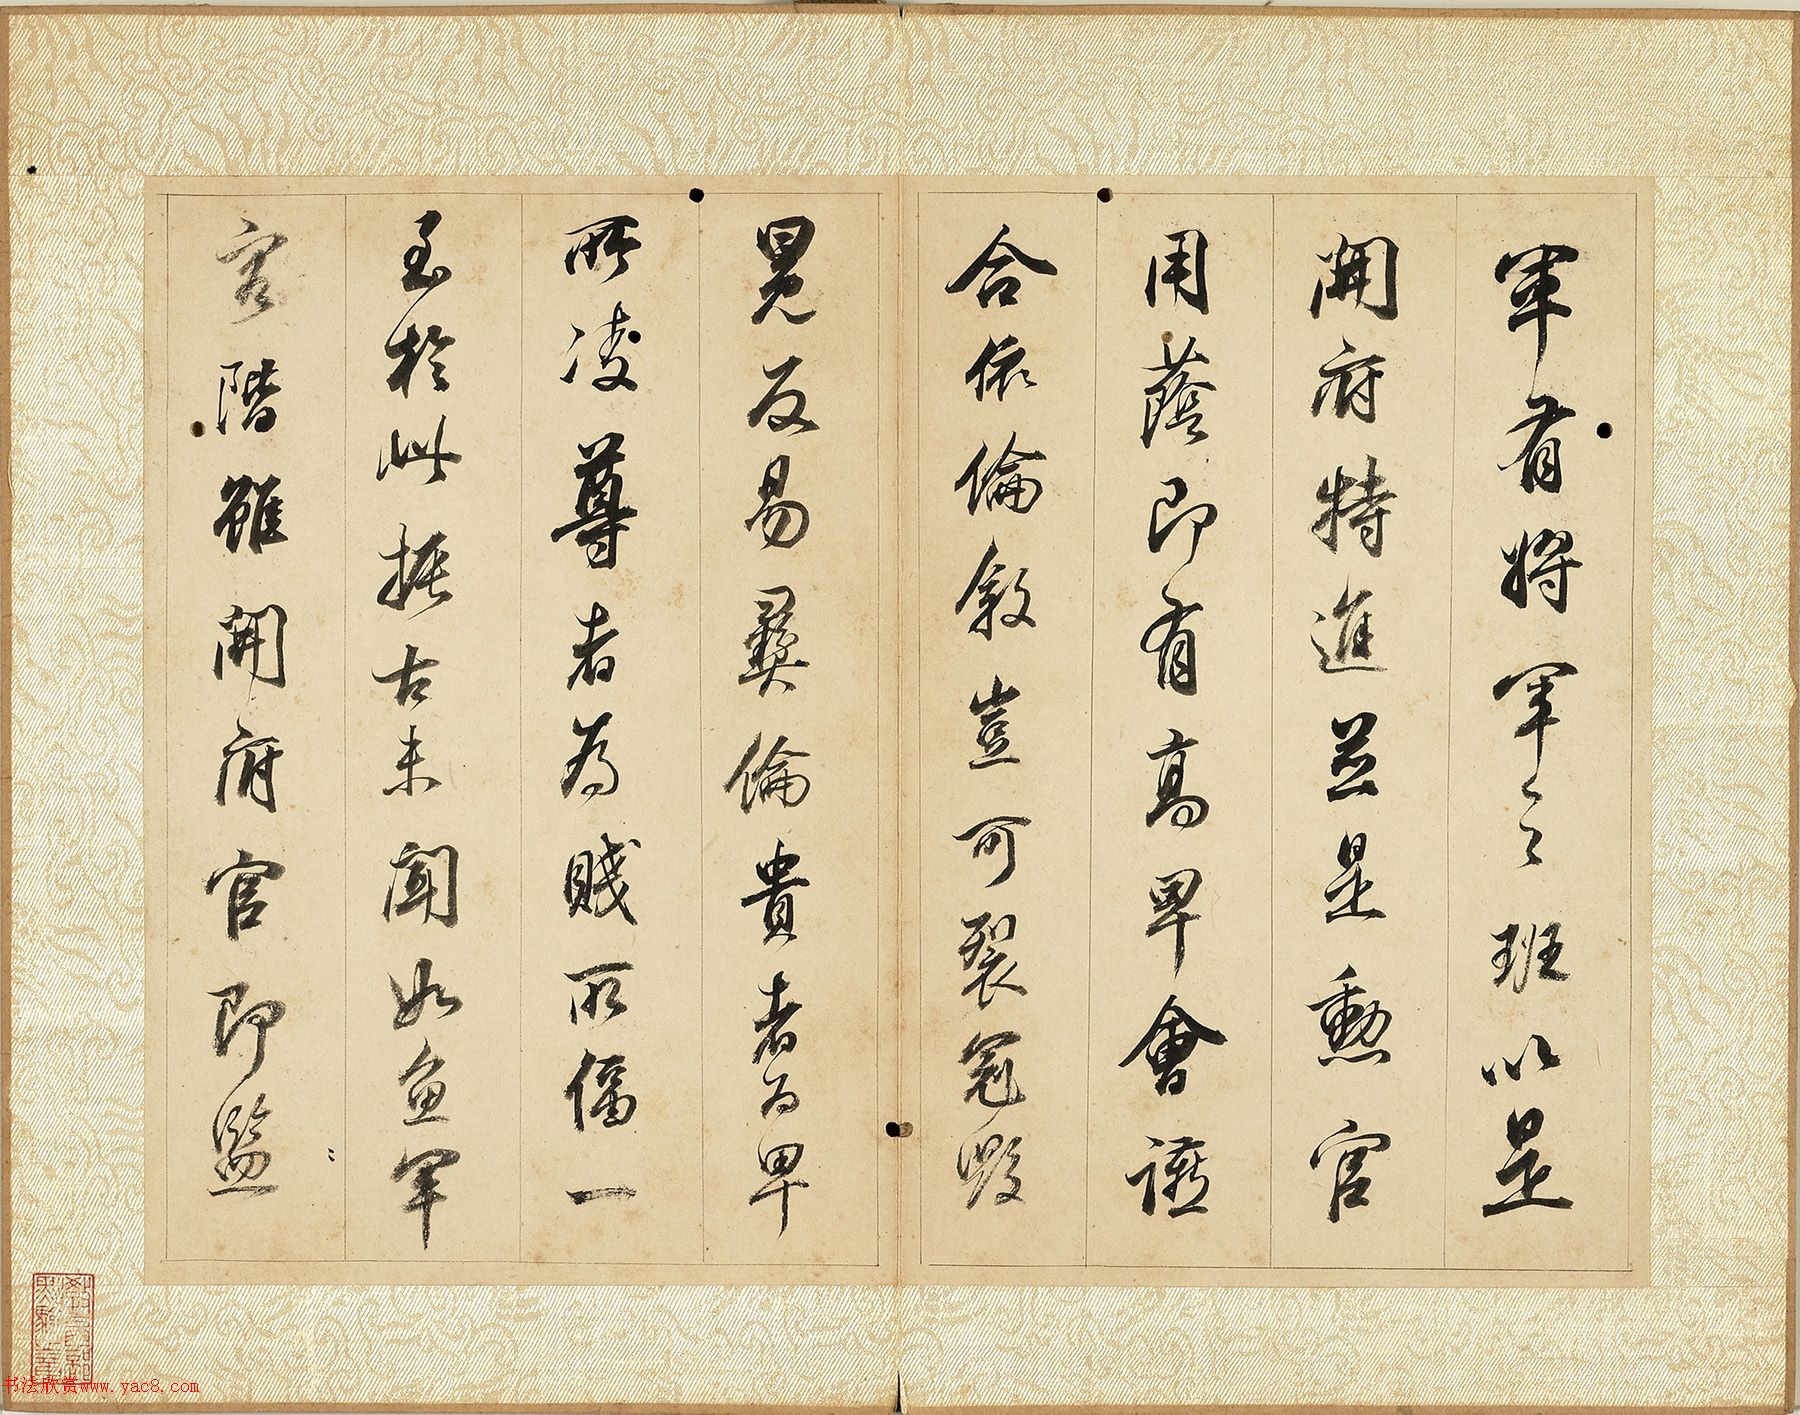 軍有將軍之班以是
開府特進並是勳官
用蔭即有高卑會讌
合依倫敘豈可裂冠毀
冕反易彝倫貴者為卑
所凌尊者為賤所偪一
至於此振古未聞如魚軍
容階雖開府官即監
书法欣赏www.yac8.com